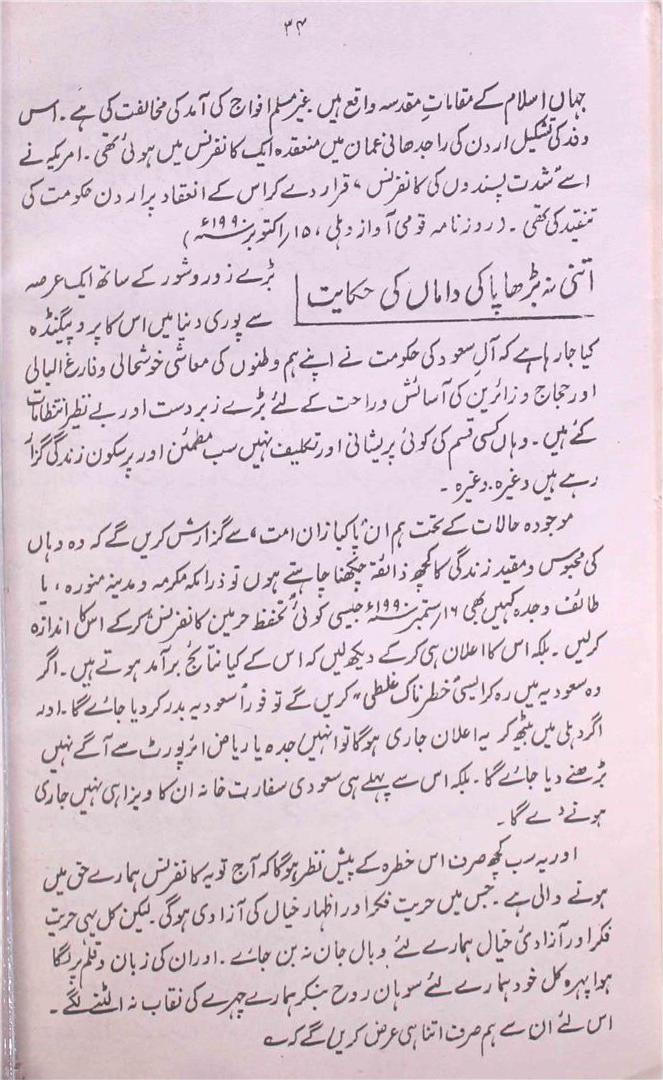 ۳۴
جہاں اسلام کے مقاماتِ مقدسہ واقع ہیں غیر مسلم افواج کی آمد کی مخالفت کی ہے۔ اس
وفد کی تشکیل اردن کی راجدھانی عمان میں منعقدہ ایک کانفرنس میں ہوئی تھی۔ امریکہ نے
اسے شدت پسندوں کی کانفرنس، قرار دے کر اس کے انعقاد پر اردن حکومت کی
تنقید کی تھی۔ (روزنامہ قومی آواز دہلی، ۱۵ اکتوبر ۱۹۹۰ء)
اتنی نہ بڑھا پاکی داماں کی حکایت
بڑے زور و شور کے ساتھ ایک عرصہ
سے پوری دنیا میں اس کا پروپیگنڈہ
کیا جا رہا ہے کہ آلِ سعود کی حکومت نے اپنے ہم وطنوں کی معاشی خوشحالی و فارغ البالی
اور حجاج و زائرین کی آسائش و راحت کے لئے بڑے زبردست اور بے نظیر انتظامات
کئے ہیں۔ وہاں کسی قسم کی کوئی پریشانی اور تکلیف نہیں سب مطمئن اور پرسکون زندگی گزار
رہے ہیں وغیرہ وغیرہ۔
موجودہ حالات کے تحت ہم ان پاکبازانِ امت، سے گزارش کریں گے کہ وہ وہاں
کی محبوس و مقید زندگی کا کچھ ذائقہ چکھنا چاہتے ہوں تو ذرا مکہ مکرمہ و مدینہ منورہ، یا
طائف و جدہ کہیں بھی ۱۶ ستمبر ۱۹۹۰ء جیسی کوئی تحفظ حرمین کانفرنس، کر کے اس کا اندازہ
کرلیں۔ بلکہ اس کا اعلان ہی کر کے دیکھ لیں کہ اس کے کیا نتائج برآمد ہوتے ہیں۔ اگر
وہ سعودیہ میں رہ کر ایسی "خطرناک غلطی" کریں گے تو فوراً سعودیہ بدر کر دیا جائے گا۔ اور
اگر دہلی میں بیٹھ کر یہ اعلان جاری ہوگا تو انہیں جدہ یا ریاض ائرپورٹ سے آگے نہیں
بڑھنے دیا جائے گا۔ بلکہ اس سے پہلے ہی سعودی سفارت خانہ ان کا ویزا ہی نہیں جاری
ہونے دے گا۔
اور یہ سب کچھ صرف اس خطرہ کے پیش نظر ہوگا کہ آج تو یہ کانفرنس ہمارے حق میں
ہونے والی ہے۔ جس میں حریت فکر اور اظہار خیال کی آزادی ہوگی۔ لیکن کل یہی حریت
فکر اور آزادئ خیال ہمارے لئے وبال جان نہ بن جائے۔ اور ان کی زبان و قلم پر لگا
ہوا پہرہ کل خود ہمارے لئے سوہان روح بنکر ہمارے چہرے کی نقاب نہ الٹنے لگے۔
اس لئے ان سے ہم صرف اتنا ہی عرض کریں گے کہ